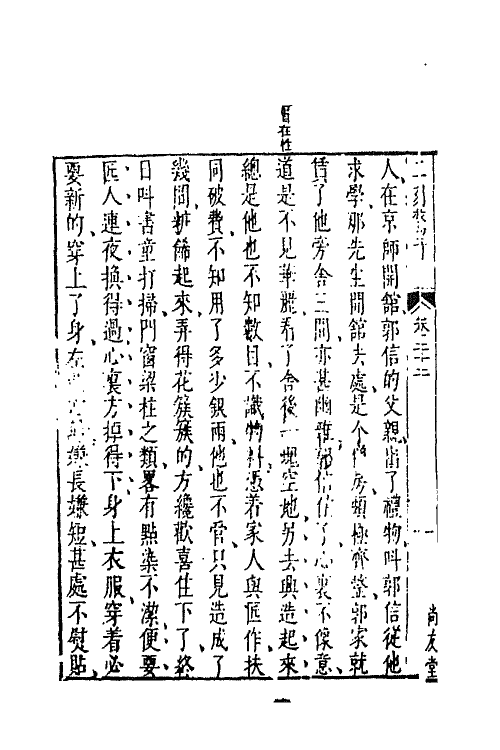 二刻驚奇　卷二十二　一　尚友堂
人在京師開舘郭信的父親出了禮物叫郭信從他
求學那先生開舘去處是个僧房頗極齊整郭家就
賃了他旁舍三間亦甚幽雅郭信住了心裏不像意
道是不見華麗看了舍後一塊空地另去興造起來
總是他也不知數目不識物料憑着家人與匠作扶
同破費不知用了多少銀兩他也不管只見造成了
幾間粧餙起來弄得花簇簇的方纔歡喜住下了終
日叫書童打掃門窗梁柱之類畧有點染不潔便要
匠人連夜換得過心裏方掉得下身上衣服穿着必
要新的穿上了身左 嫌長嫌短甚處不熨貼